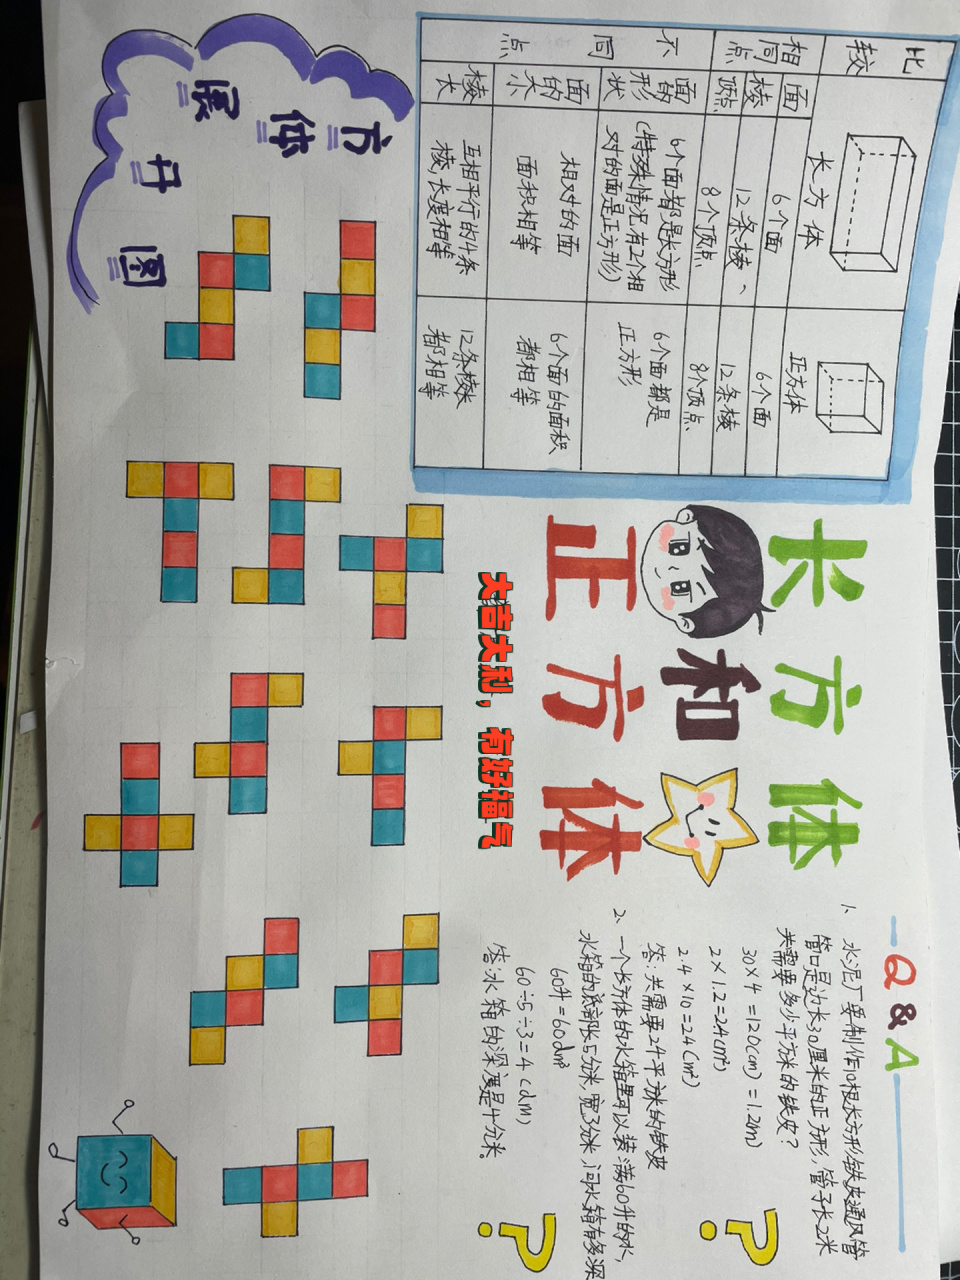 长方体
和
正方体
大吉大利，有好福气
比较
长方体
正方体
相同点
面
6个面
6个面
棱
12条棱、
12条棱
顶点
8个顶点
8个顶点
不同点
面的形状
6个面都是长方形
(特殊情况有2个相
对的面是正方形)
6个面都是
正方形
面的大小
相对的面
面积相等
6个面的面积
都相等
棱长
互相平行的4条
棱,长度相等
12条棱长
都相等
Q & A
1、水泥厂要制作10根长方形铁皮通风管
管口是边长30厘米的正方形,管子长2米
共需要多少平方米的铁皮?
30×4=120(cm)=1.2(m)
2×1.2=2.4(m²)
2.4×10=24(m²)
答:共需要24平方米的铁皮
2、一个长方体的水箱里可以装满60升的水,
水箱的底部长5分米,宽3分米,问水箱有多深
60升=60dm³
60÷5÷3=4(dm)
答:水箱的深度是4分米。
?
?
方体
展
开
图